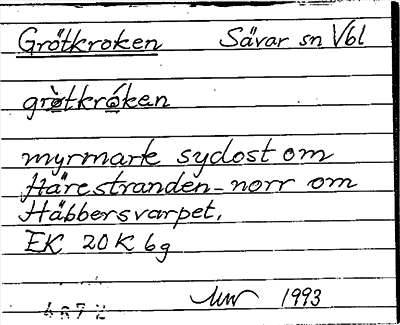 Grötkroken Sävar sn Vbl
grò̱tkró̱ken
myrmark sydost om
Härestranden - norr om
Häbbersvarpet.
EK 20K 6g
1993